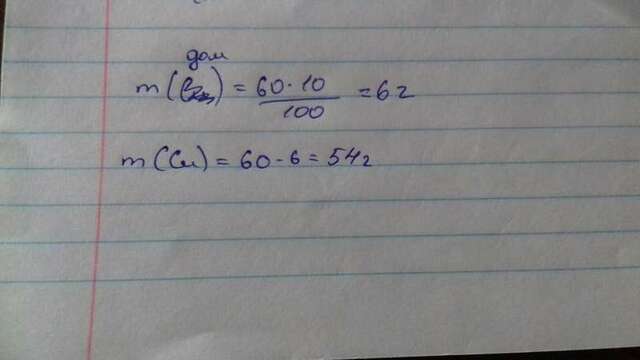 дом
m ( ) = 60·10 / 100 = 6г
m (Cu) = 60 - 6 = 54г